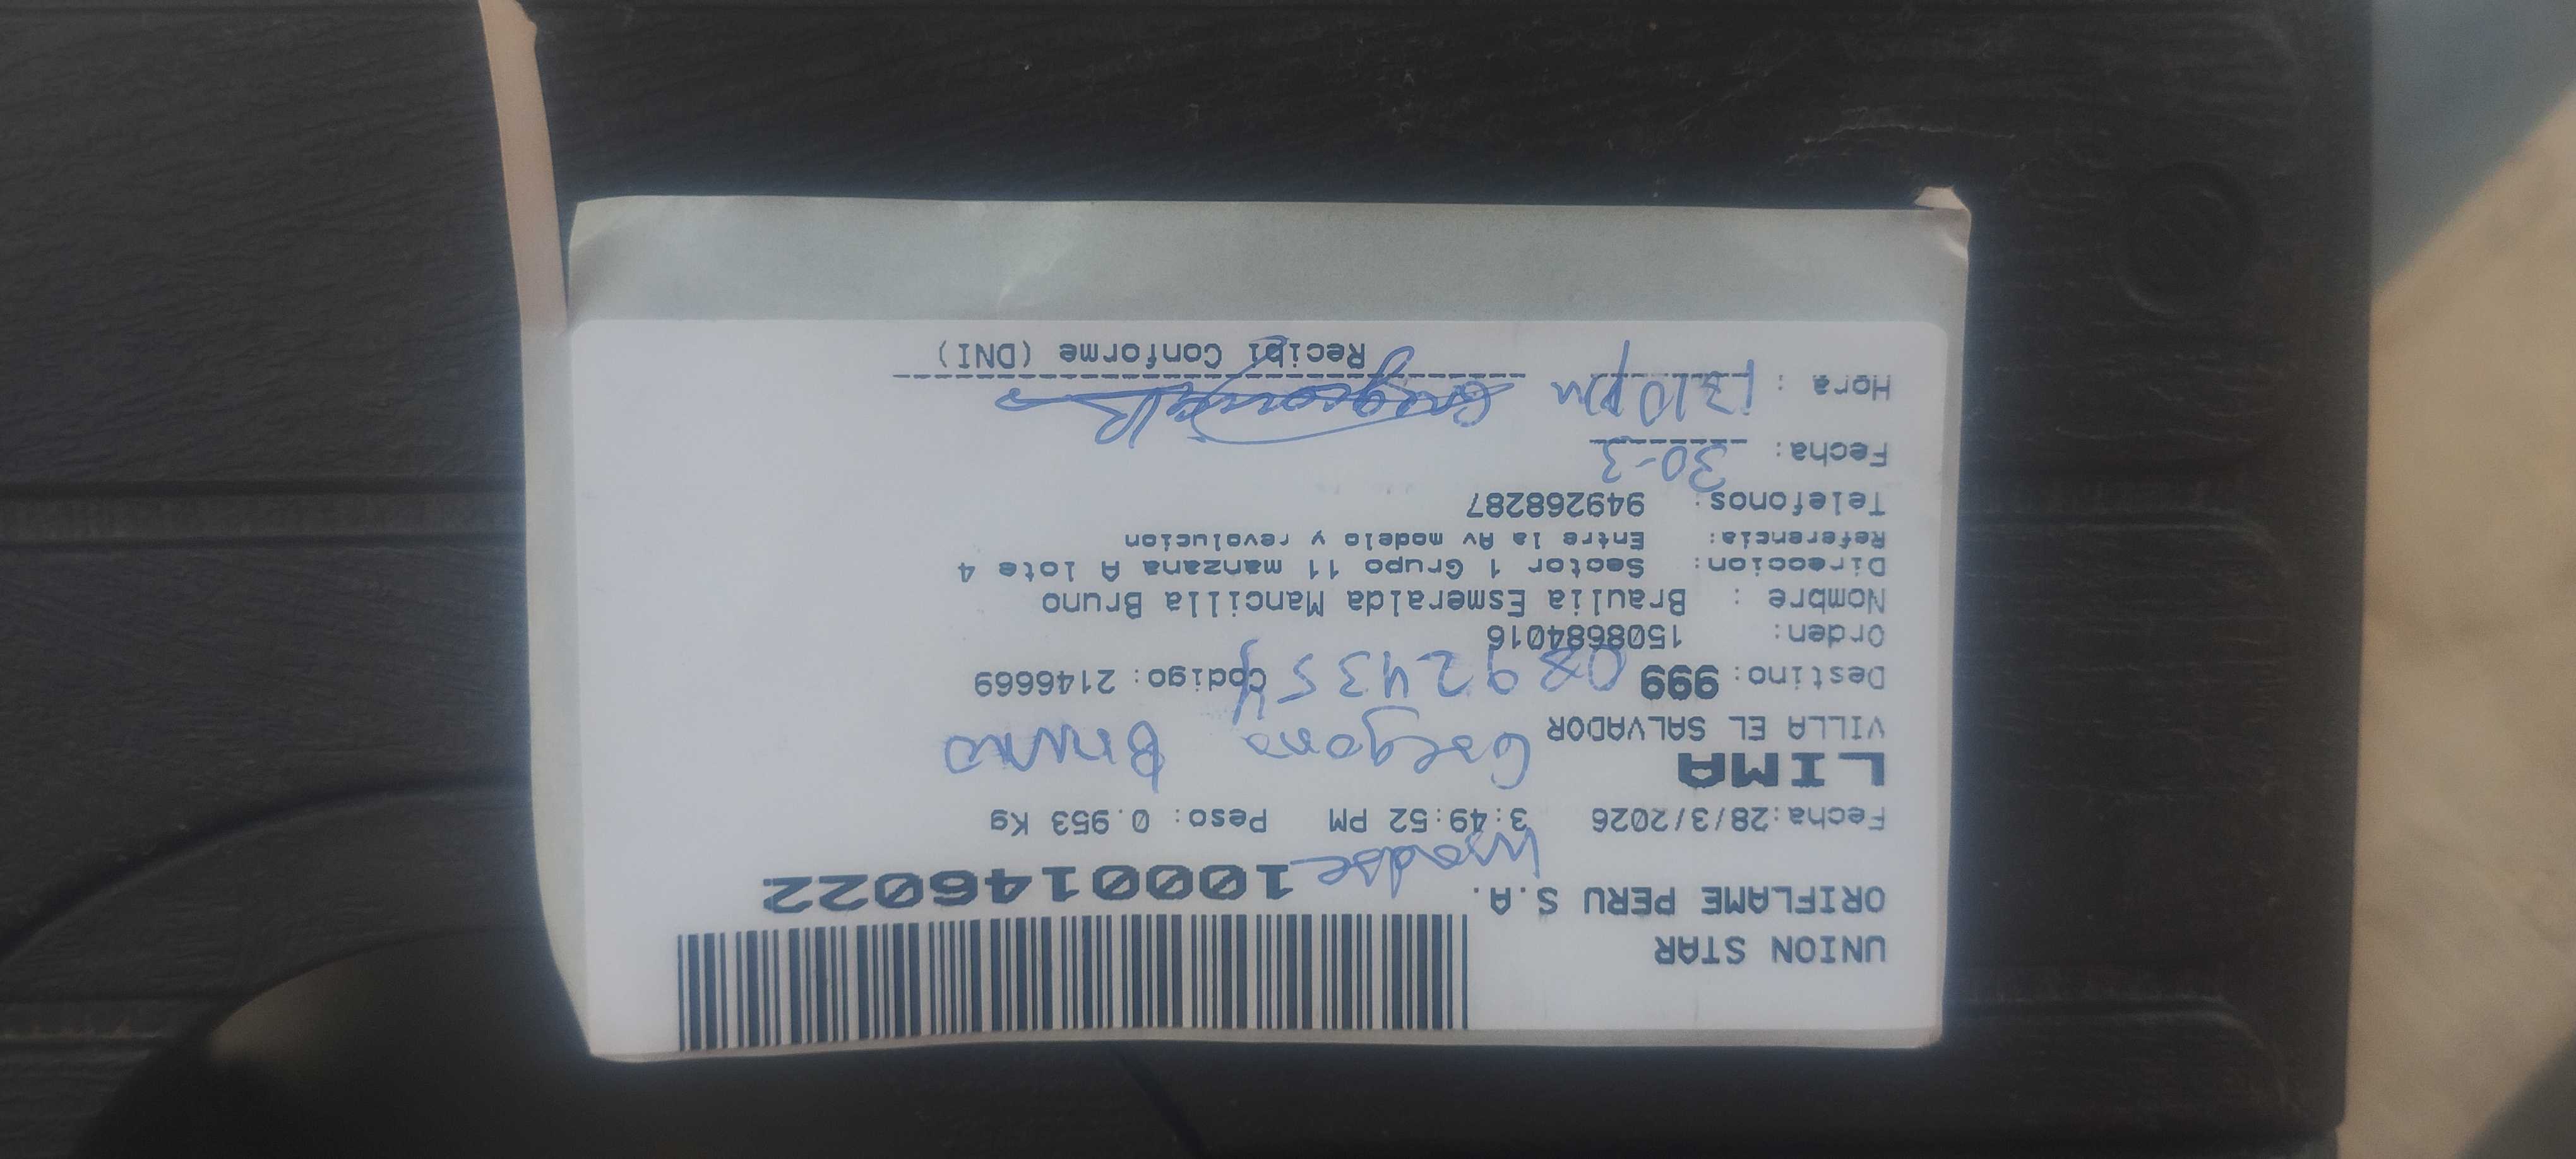 UNION STAR
ORIFLAME PERU S.A. 1000146022
Fecha:28/3/2026 3:49:52 PM Peso: 0.953 Kg
LIMA
VILLA EL SALVADOR
Bruno
Destino: 999 Codigo: 2146669
08924354
Orden: 1508684016
Nombre : Braulia Esmeralda Mancilla Bruno
Direccion: Sector 1 Grupo 11 manzana A lote 4
Referencia: Entre la Av modelo y revolucion
Telefonos: 949268287
Fecha: 30-3
Hora : 1210pm
Recibi Conforme (DNI)